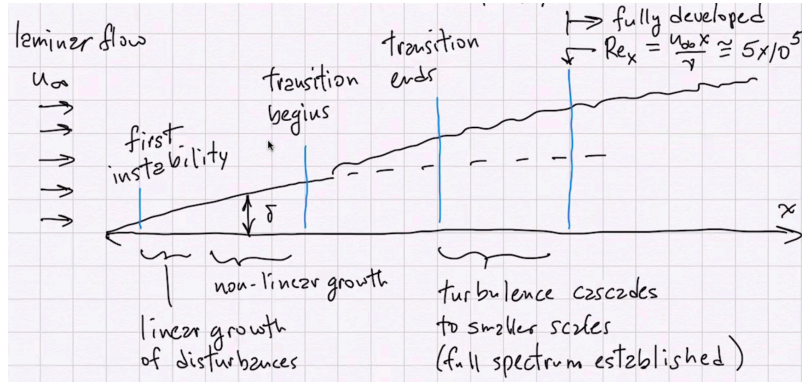 laminar flow
u∞
first
instability
transition
begins
transition
ends
fully developed
Re_x = u∞x/ν ≅ 5x10^5
δ
x
linear growth
of disturbances
non-linear growth
turbulence cascades
to smaller scales
(full spectrum established)